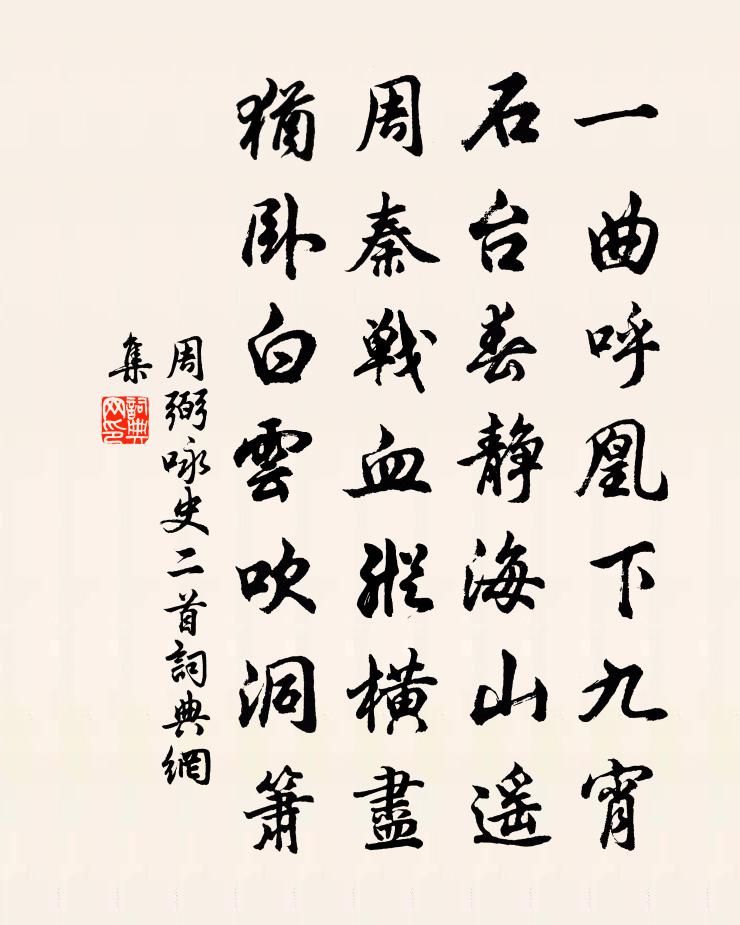 一曲呼凰下九宵
石台春静海山遥
周秦戰血縱橫盡
猶卧白雲吹洞簫
周弼咏史二首詞典網
集
詞典
网印